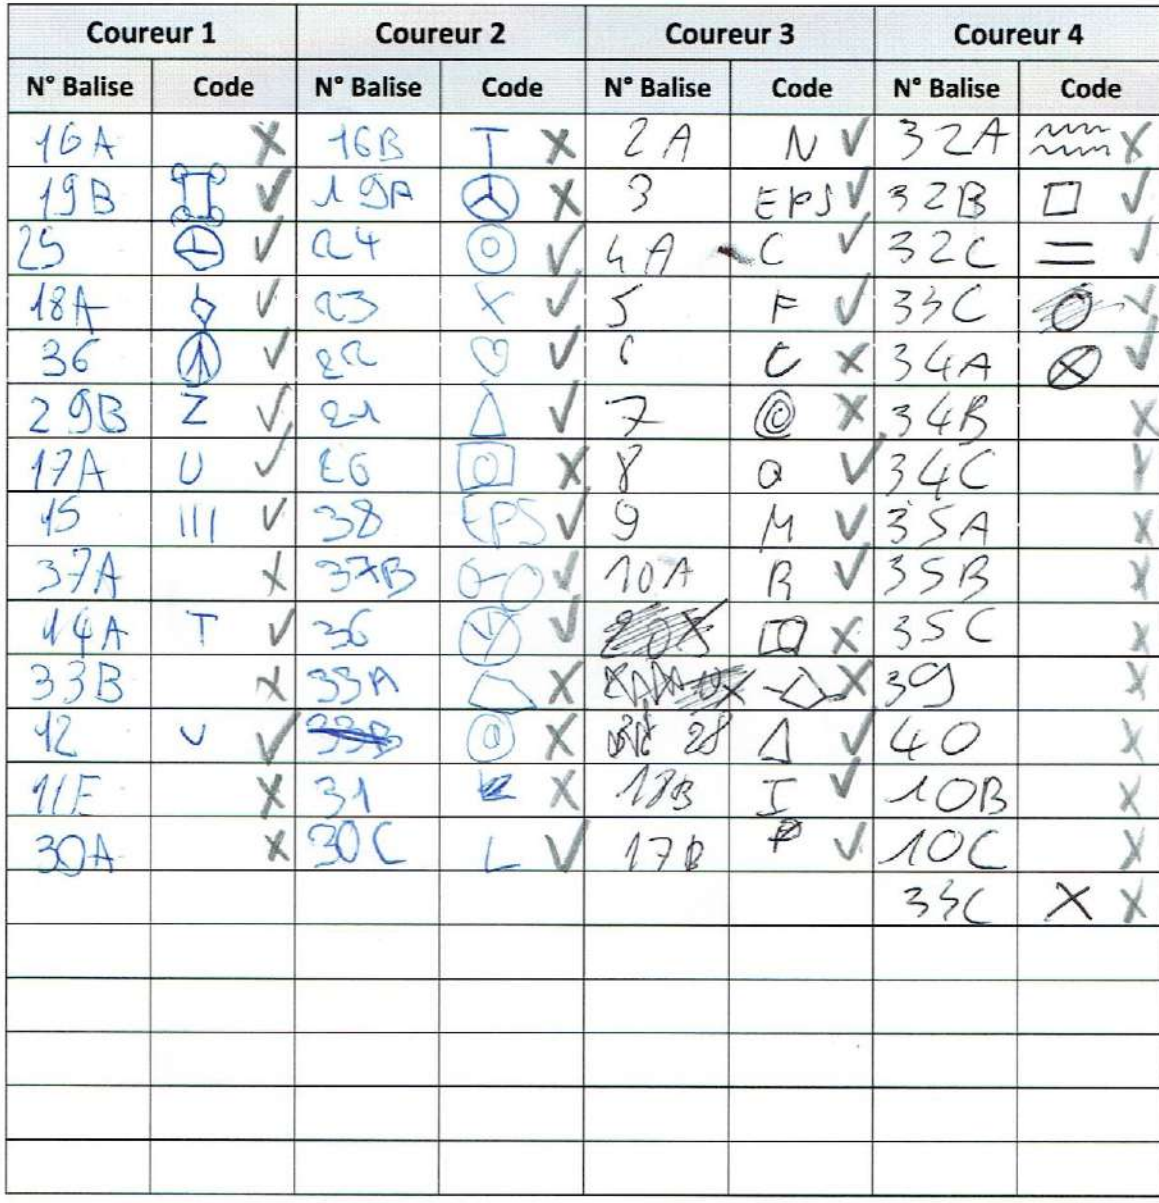 Coureur 1 Coureur 2 Coureur 3 Coureur 4
N° Balise Code N° Balise Code N° Balise Code N° Balise Code
16A 16B T 2A N 32A
19B 19A 3 EPS 32B
25 24 4A C 32C
18A 23 X 5 F 33C
36 22 6 C 34A
29B Z 21 7 34B
17A U 26 8 Q 34C
15 III 38 EPS 9 M 35A
37A 37B 10A R 35B
14A T 36 35C
33B 33A 39
12 U 33B 28 40
11E 31 18B I 10B
30A 30C L 17B P 10C
33C X